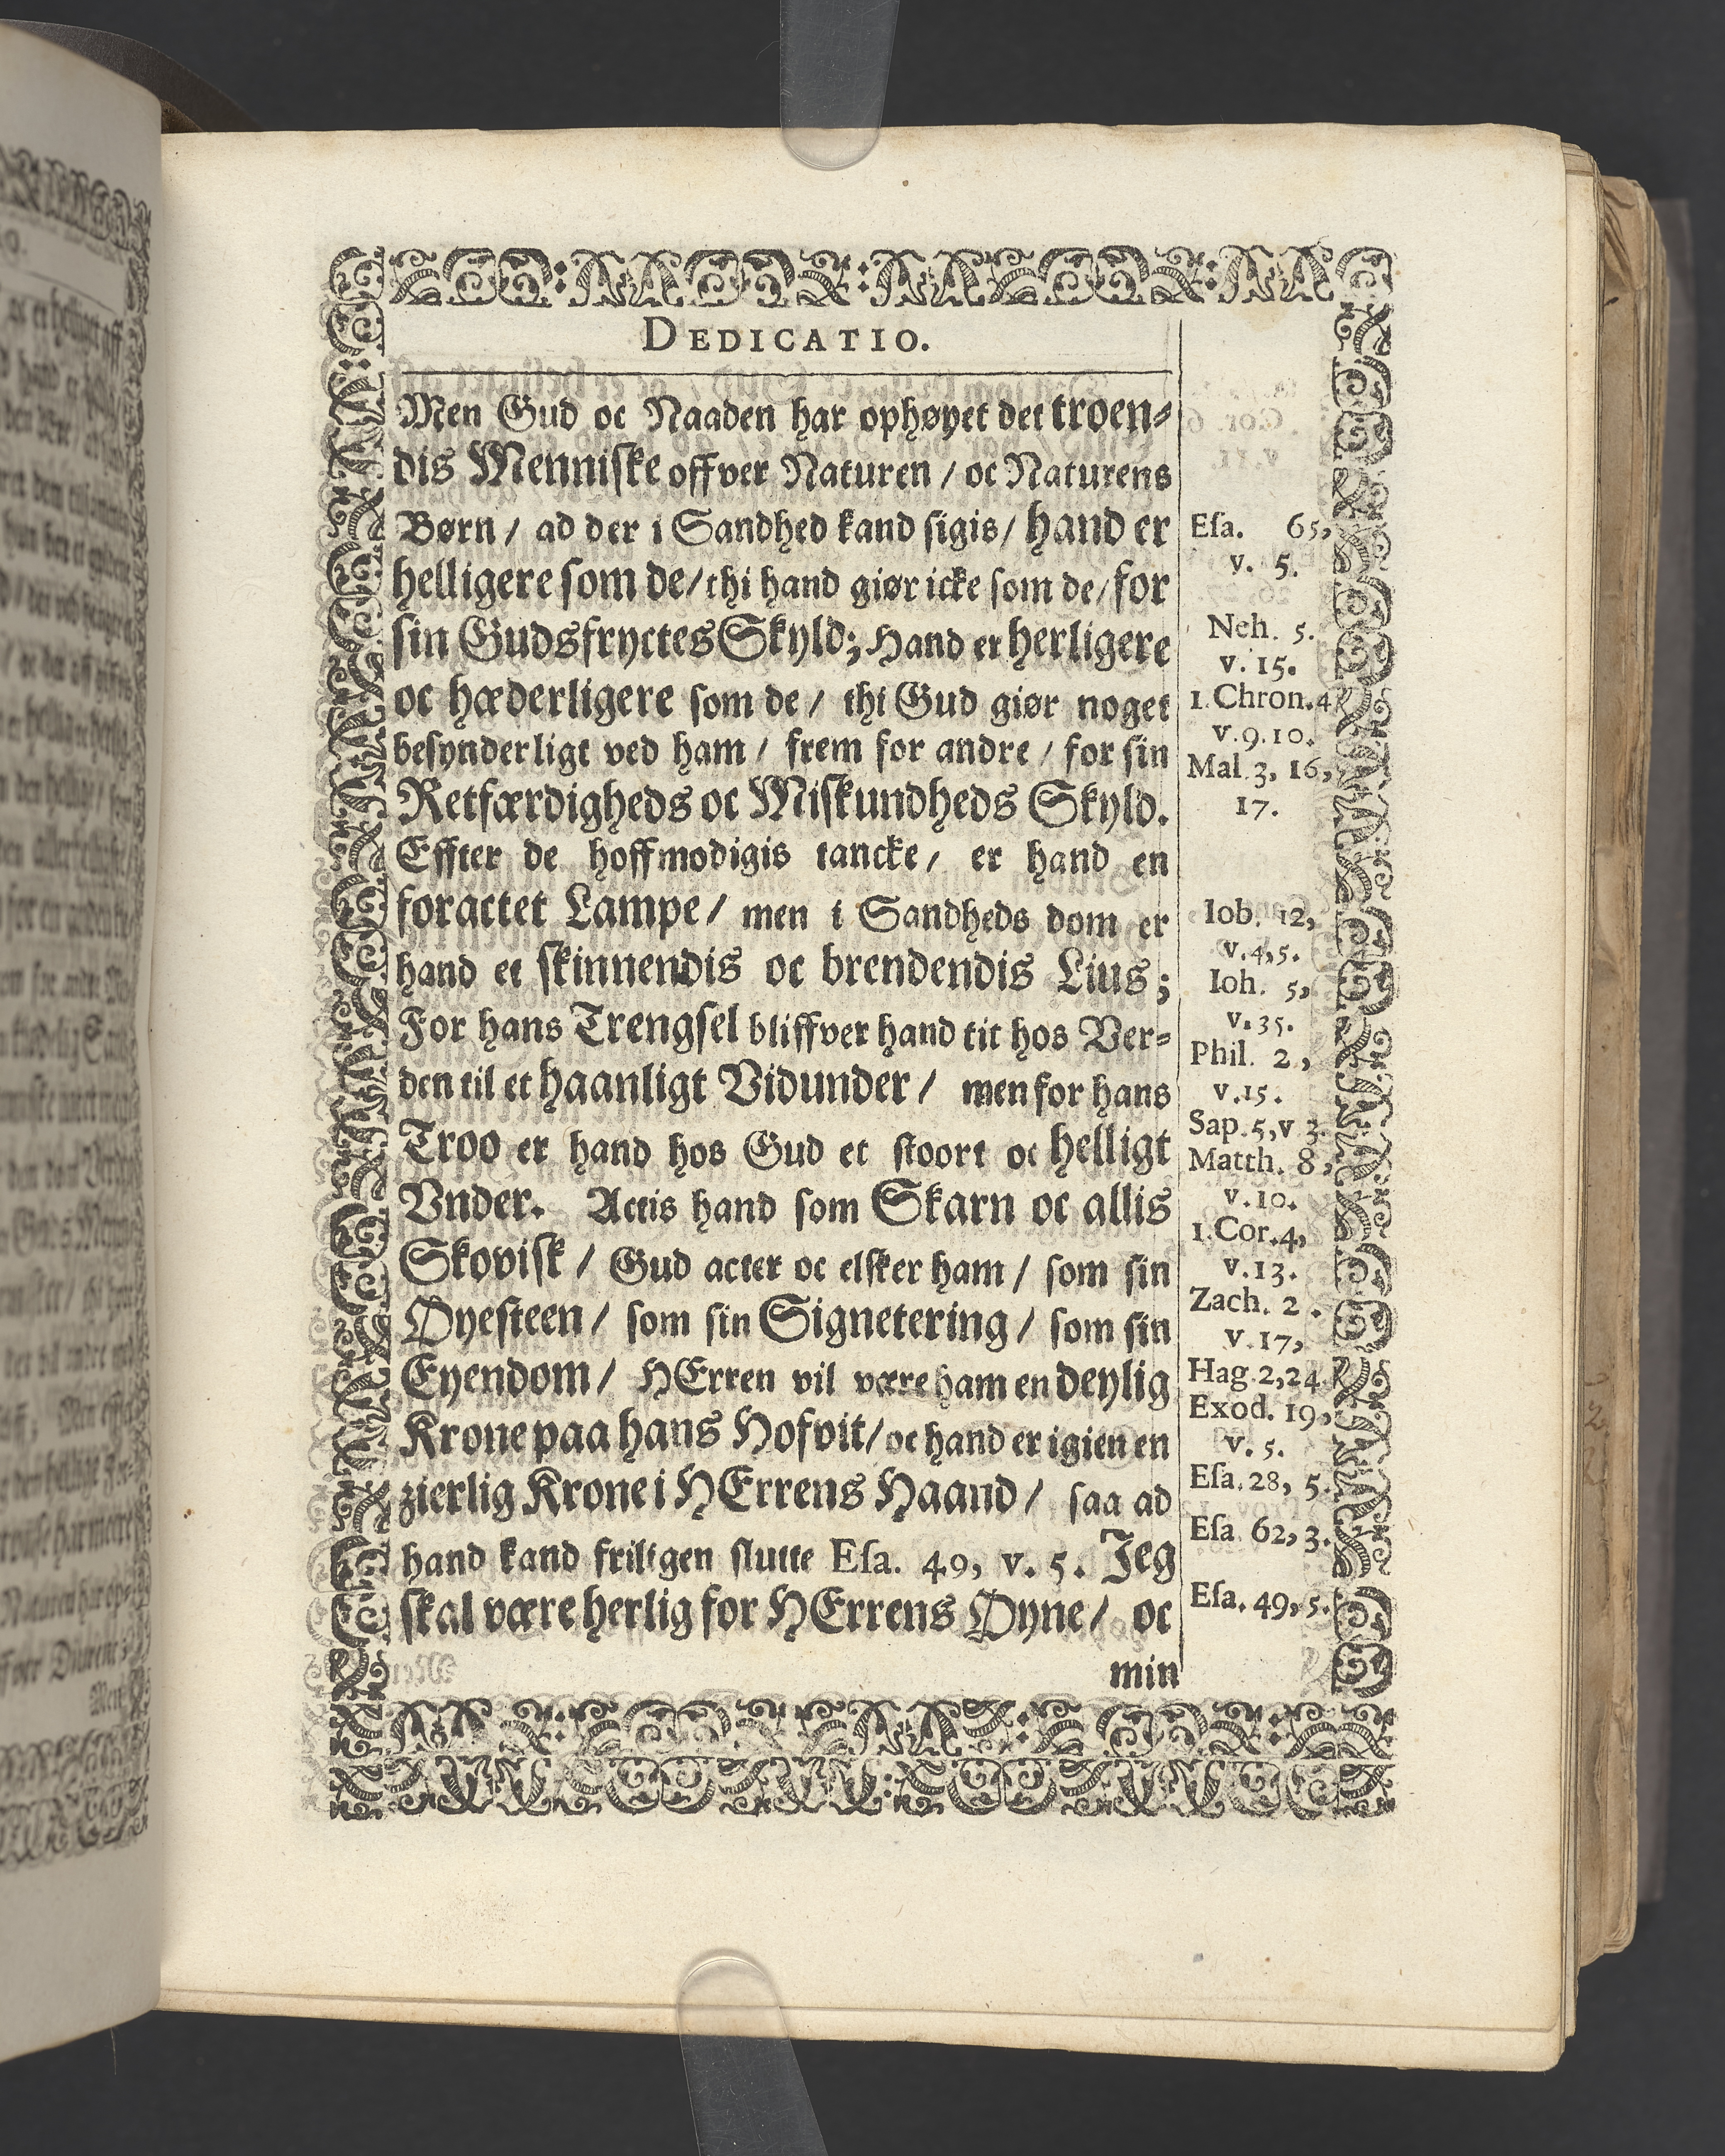 DEDICATIO.
Men Gud oc Naaden har ophøyet det troen-
dis Menniske offver Naturen / oc Naturens
Børn / ad der i Sandhed kand sigis / hand er
helligere som de / thi hand giør icke som de / for
sin Gudsfryctes Skyld; Hand er herligere
oc hæderligere som de / thi Gud giør noget
besynderligt ved ham / frem for andre / for sin
Retfærdigheds oc Miskundheds Skyld.
Effter de hoffmodigis tancke / er hand en
foractet Lampe / men i Sandheds dom er
hand et skinnendis oc brendendis Lius;
For hans Trengsel bliffver hand tit hos Ver-
den til et haanligt Vidunder / men for hans
Troo er hand hos Gud et stoort oc helligt
Vnder. Actis hand som Skarn oc allis
Skovisk / Gud acter oc elsker ham / som sin
Øyesteen / som sin Signetering / som sin
Eyendom / HErren vil være ham en deylig
Krone paa hans Hofvit / oc hand er igien en
zierlig Krone i HErrens Haand / saa ad
hand kand friligen slutte Esa. 49, v. 5. Jeg
skal være herlig for HErrens Øyne / oc
min
Esa. 65,
v. 5.
Neh. 5.
v. 15.
1. Chron. 4
v. 9. 10.
Mal. 3, 16,
17.
Iob. 12,
v. 4, 5.
Ioh. 5,
v. 35.
Phil. 2,
v. 15.
Sap. 5, v 3.
Matth. 8,
v. 10.
1. Cor. 4,
v. 13.
Zach. 2.
v. 17,
Hag. 2, 24.
Exod. 19,
v. 5.
Esa. 28, 5.
Esa 62, 3.
Esa. 49, 5.